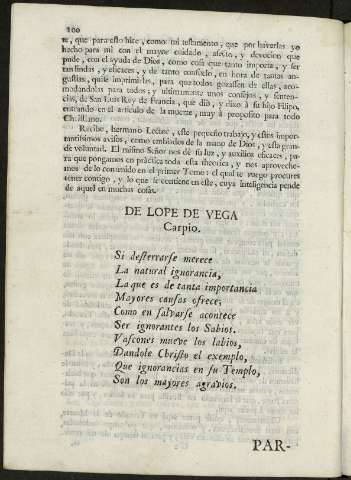 100
te, que para esto hice, como mi testamento, que por haverlas yo
hecho para mi con el mayor cuidado, afecto, y devocion que
pude, con el ayuda de Dios, como cosa que tanto importa, y ser
tan sindas, y eficaces, y de tanto consuelo, en hora de tantas an-
gustias, quise imprimirlas, para que todos gozassen de ellas, aco-
modandolas para todos; y ultimamente unos consejos, y senten-
cias, de San Luis Rey de Francia, que dió, y dixo á su hijo Filipo,
entrando en el articulo de la muerte, muy á proposito para todo
Christiano.
Recibe, hermano Lector, este pequeño trabajo, y estos impor-
tantissimos avisos, como embiados de la mano de Dios, y esta gran-
de voluntad. El mismo Señor nos dé su luz, y auxilios eficaces, pa-
ra que pongamos en práctica toda esta theorica, y nos aproveche-
mos de lo contenido en el primer Tomo: el qual te ruego procures
tener contigo, y lo que se contiene en este, cuya inteligencia pende
de aquel en muchas cosas.
DE LOPE DE VEGA
Carpio.
Si desterrarse merece
La natural ignorancia,
La que es de tanta importancia
Mayores causas ofrece;
Como en salvarse acontece
Ser ignorantes los Sabios.
Vascones mueve los labios,
Dandole Christo el exemplo,
Que ignorancias en su Templo,
Son los mayores agravios.
PAR-